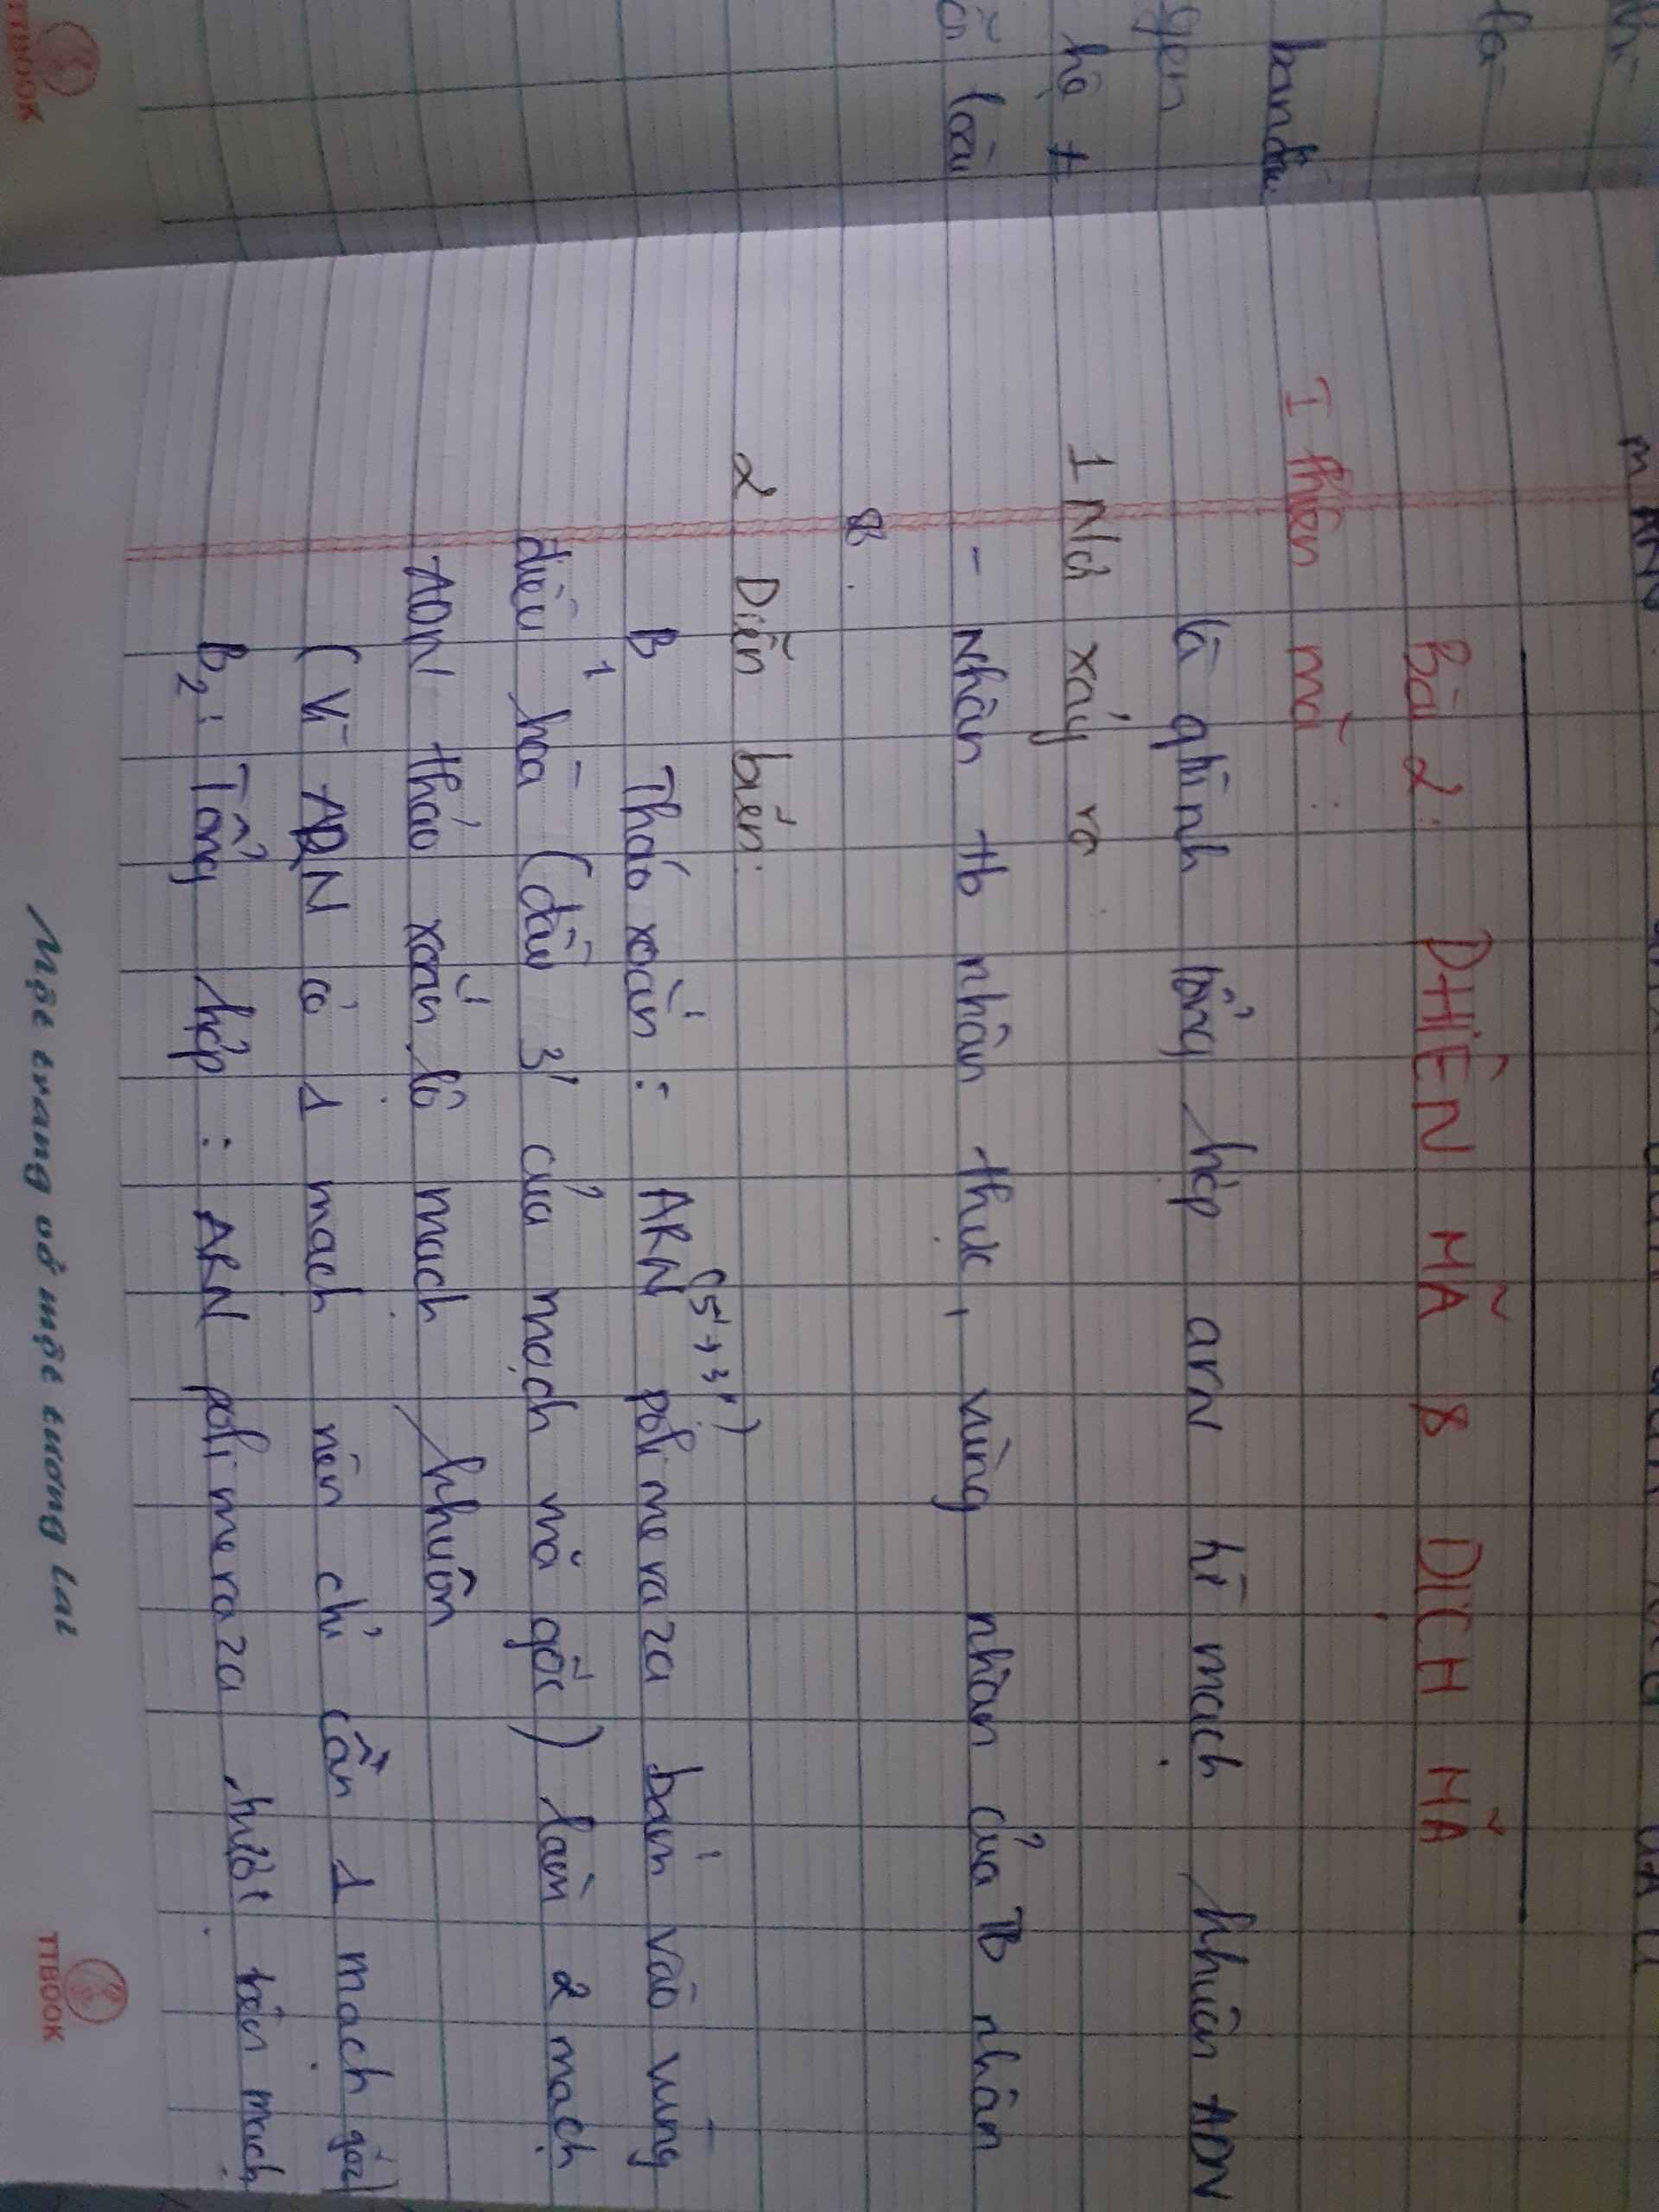 Bài 2: PHIÊN MÃ & DỊCH MÃ
I Phiên mã:
là qtrình tổng hợp arN từ mạch khuôn ADN
1 Nơi xảy ra
- Nhân tb nhân thực, vùng nhân của TB nhân
2 Diễn biến:
(5'→3')
B1 Tháo xoắn: ARN polimeraza bám vào vùng
điều hòa (đầu 3' của mạch mã gốc) làm 2 mạch
ADN tháo xoắn, lộ mạch khuôn
(Vì ARN có 1 mạch nên chỉ cần 1 mạch gốc)
B2: Tổng hợp: ARN polimeraza trượt trên mạch
Một trang vở một tương lai
TTBOOK
TTBOOK
là
ban đầu
gen
loài